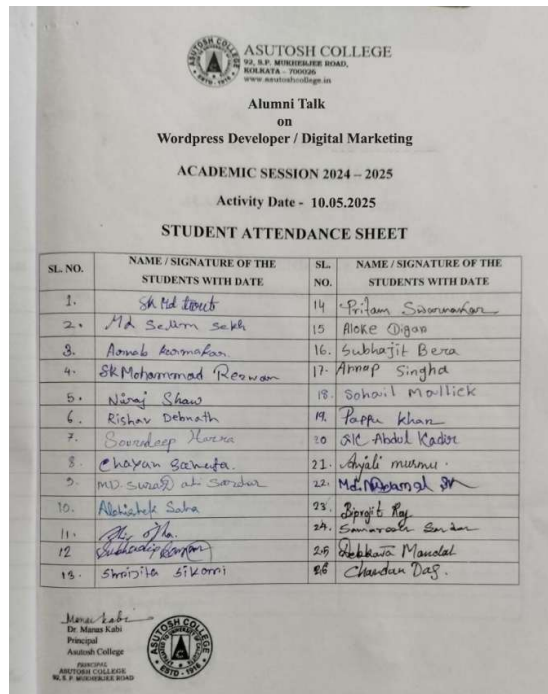 ASUTOSH COLLEGE
92, S.P. MUKHERJEE ROAD,
KOLKATA - 700026
www.asutoshcollege.in
Alumni Talk
on
Wordpress Developer / Digital Marketing
ACADEMIC SESSION 2024 – 2025
Activity Date - 10.05.2025
STUDENT ATTENDANCE SHEET
SL. NO. NAME / SIGNATURE OF THE STUDENTS WITH DATE SL. NO. NAME / SIGNATURE OF THE STUDENTS WITH DATE
1. Sk Md 14 Pritam Swarnakar
2. Md Selim Sekh 15 Aloke Digar
3. Arnab Karmakar 16. Subhajit Bera
4. SK Mohammad Reswan 17. Arnap Singha
5. Niraj Shaw 18. Sohail Mallick
6. Rishav Debnath 19. Pappu Khan
7. Souradeep Hazra 20 SK Abdul Kadir
8. Chayan Samanta. 21. Anjali murmu.
9. MD. Suraj ali Sardar 22. Md.
10. Abhishek Saha 23. Biprojit Roy
11. 24. Samaresh Sardar
12 Subhadip 25 Debbrata Mandal
13. 26 Chandan Das.
Manas Kabi
Dr. Manas Kabi
Principal
Asutosh College
PRINCIPAL
ASUTOSH COLLEGE
92, S. P. MUKHERJEE ROAD